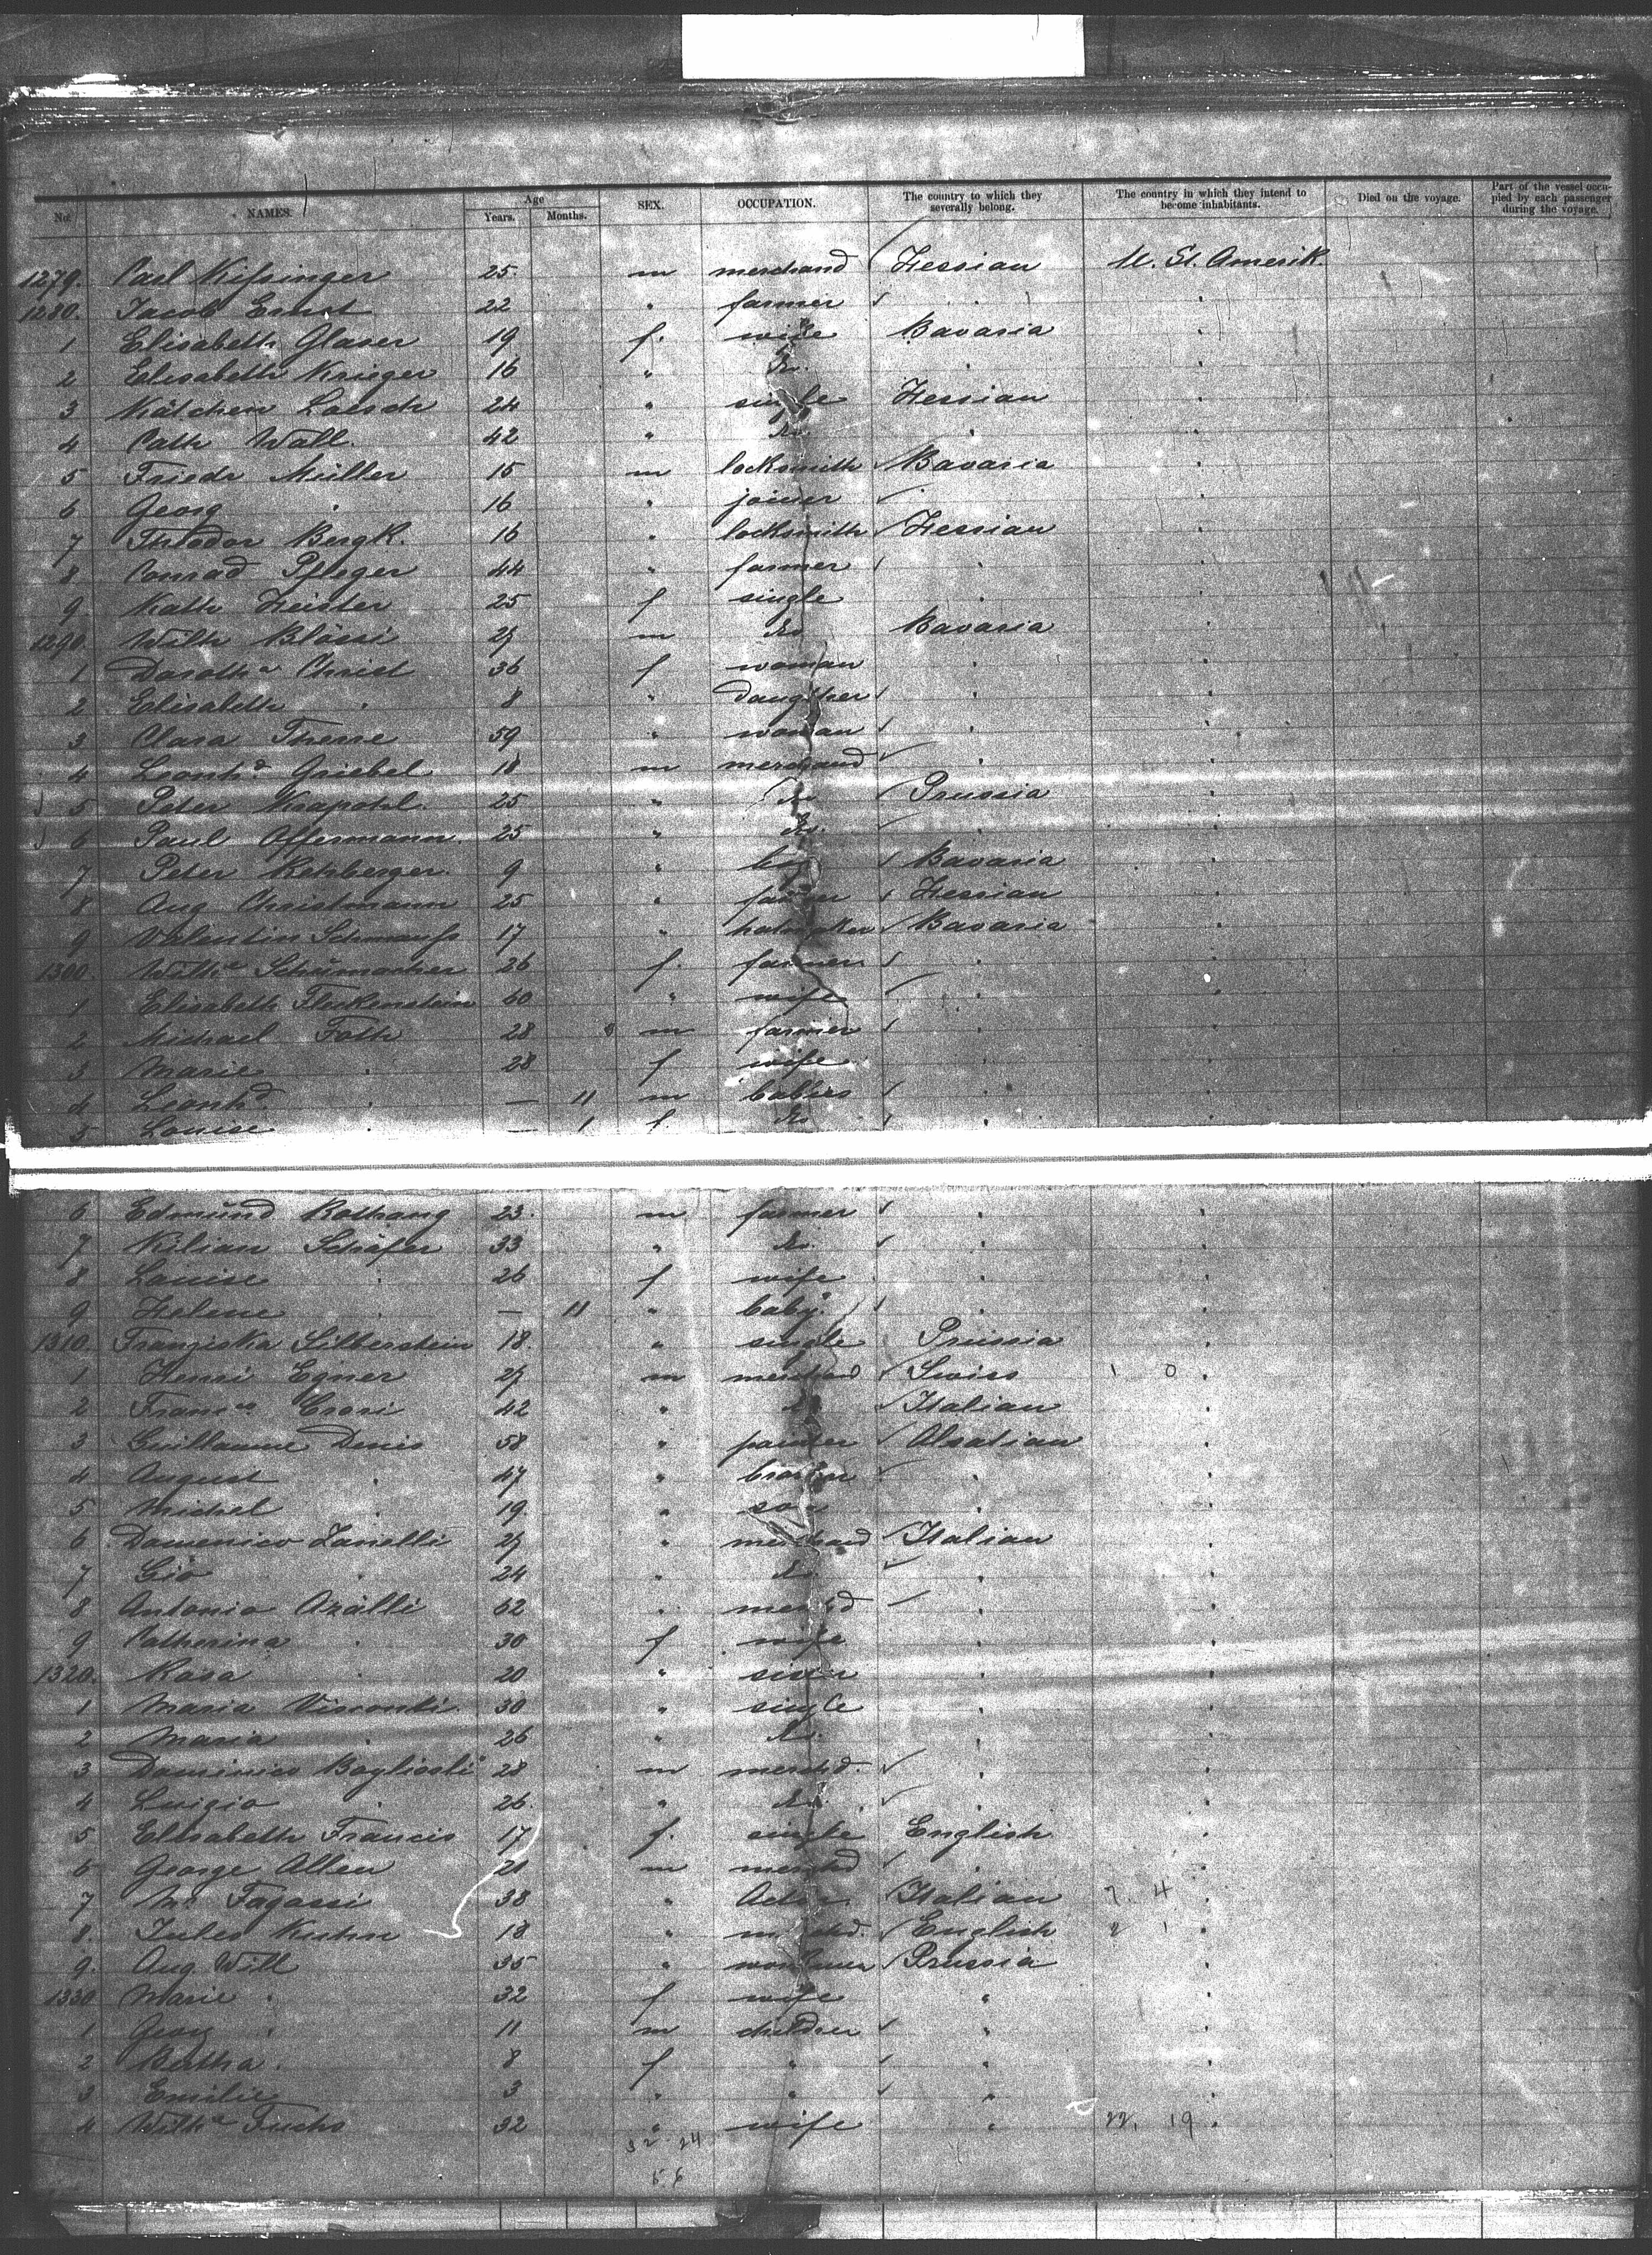 No. NAMES. Age Years. Months. SEX. OCCUPATION. The country to which they severally belong. The country in which they intend to become inhabitants. Died on the voyage. Part of the vessel occupied by each passenger during the voyage.
1279. Carl Kissinger 25 m merchand Hessian U. St. Amerik.
1280. Jacob Ernst 22 " farmer "
1 Elisabeth Glaser 19 f. wife Bavaria "
2 Elisabeth Krieger 16 " do. " "
3 Kätchen Loesch 24 " single Hessian "
4 Cath Wall 42 " do " "
5 Friedr Müller 15 m locksmith Bavaria "
6 Georg " 16 " joiner "
7 Theodor Bergk. 16 " locksmith Hessian "
8 Conrad Pfleger 44 " farmer " "
9 Kath Heister 25 f single " "
1290. Wilh Blössi 27 m do Bavaria "
1 Doroth a Christ 36 f woman " "
2 Elisabeth " 8 " daugther " "
3 Clara Therre 59 " woman " "
4 Leonhd Griebel 18 m merchand " "
5 Peter Krapohl. 25 " do Prussia "
6 Paul Offermann. 25 " do. " "
7 Peter Rehberger. 9 " boy Bavaria "
8 Aug Christmann 25 " farmer Hessian "
9 Valentin Schmauss 17 " hatmaker Bavaria "
1300 Wilha Schümacher 26 f. farmer " "
1 Elisabeth Fleckenstein 60 " wife " "
2 Michael Foth 28 m farmer " "
3 Marie " 28 f wife " "
4 Leonhd " — 11 m babies " "
5 Louise " — 1 f do " "
6 Edmund Rothang 23 m farmer " "
7 Kilian Schäfer 33 " do. " "
8 Louise " 26 f wife " "
9 Helene " — 11 " baby " "
1310. Franziska Silberstein 18. " single Prussia "
1 Henri Egner 27 m merchand Swiss 1 0 "
2 42 " do Italian "
3 Guillaume Denis 58 " painter Alsatian "
4 August " 47 " " "
5 Michel " 19 " son " "
6 Domenico Zanelli 27 " merchand Italian "
7 Gio " 24 " do. " "
8 Antonio Azälli " merchd " "
9 Catherina " 30 f wife " "
1320. Rosa " 20 " " "
1 Maria Visconti 30 " single " "
2 Maria " 26 " do. " "
3 Dominico Boglioli 28 m merchd. " "
4 Luigio " 26. " do. " "
5 Elisabeth Francis 17 f. single English "
6 George Allen 21 m merchd " "
7 Mr. Fagassi 38 " Actor. Italian 7 4 "
8. Jules Kuhn 18 " merchd. English 2 1 "
9. Aug. Will 35 " Prussia "
1330 Marie " 32 f wife " "
1 Georg " 11 m children " "
2 Bertha " 8 f " " "
3 Emilie 3 " " " "
4 Wilha Fuchs 32 " wife " 22. 19 "
32 24
5.6